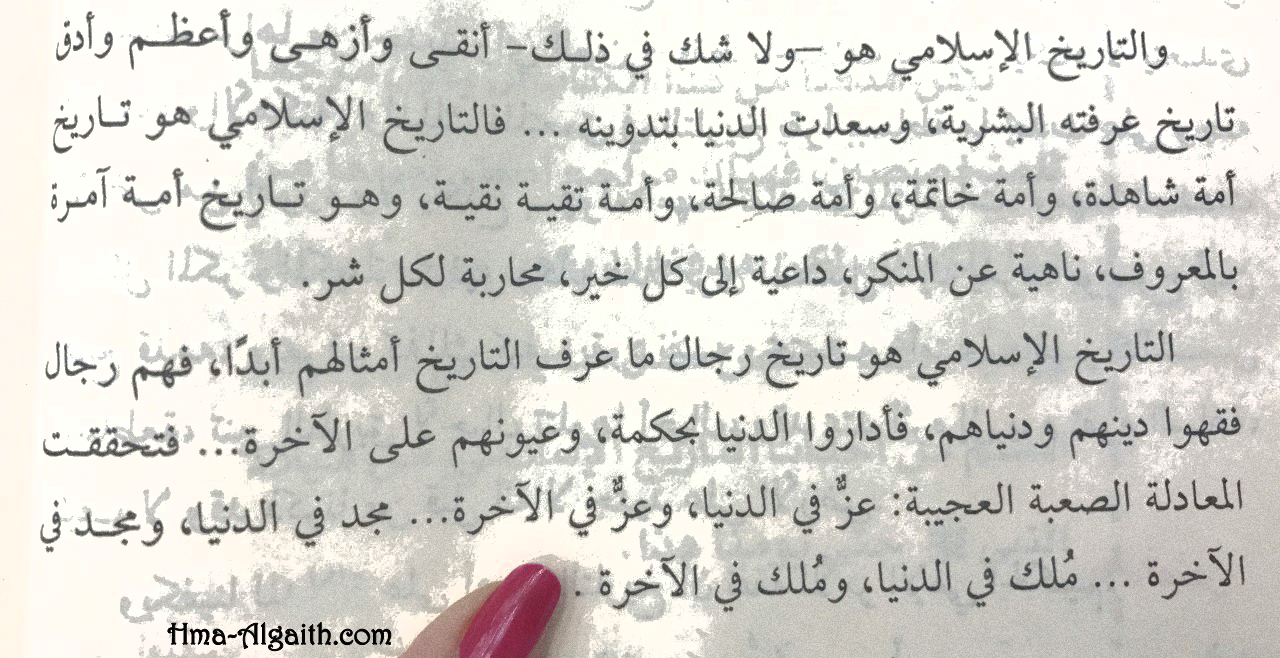 والتاريخ الإسلامي هو –ولا شك في ذلك– أنقى وأزهى وأعظم وأدق
تاريخ عرفته البشرية، وسعدت الدنيا بتدوينه ... فالتاريخ الإسلامي هو تاريخ
أمة شاهدة، وأمة خاتمة، وأمة صالحة، وأمة تقية نقية، وهو تاريخ أمة آمرة
بالمعروف، ناهية عن المنكر، داعية إلى كل خير، محاربة لكل شر.
التاريخ الإسلامي هو تاريخ رجال ما عرف التاريخ أمثالهم أبدًا، فهم رجال
فقهوا دينهم ودنياهم، فأداروا الدنيا بحكمة، وعيونهم على الآخرة... فتحققت
المعادلة الصعبة العجيبة: عزٌّ في الدنيا، وعزٌّ في الآخرة... مجد في الدنيا، ومجد في
الآخرة ... مُلك في الدنيا، ومُلك في الآخرة .
Hma-Algaith.com